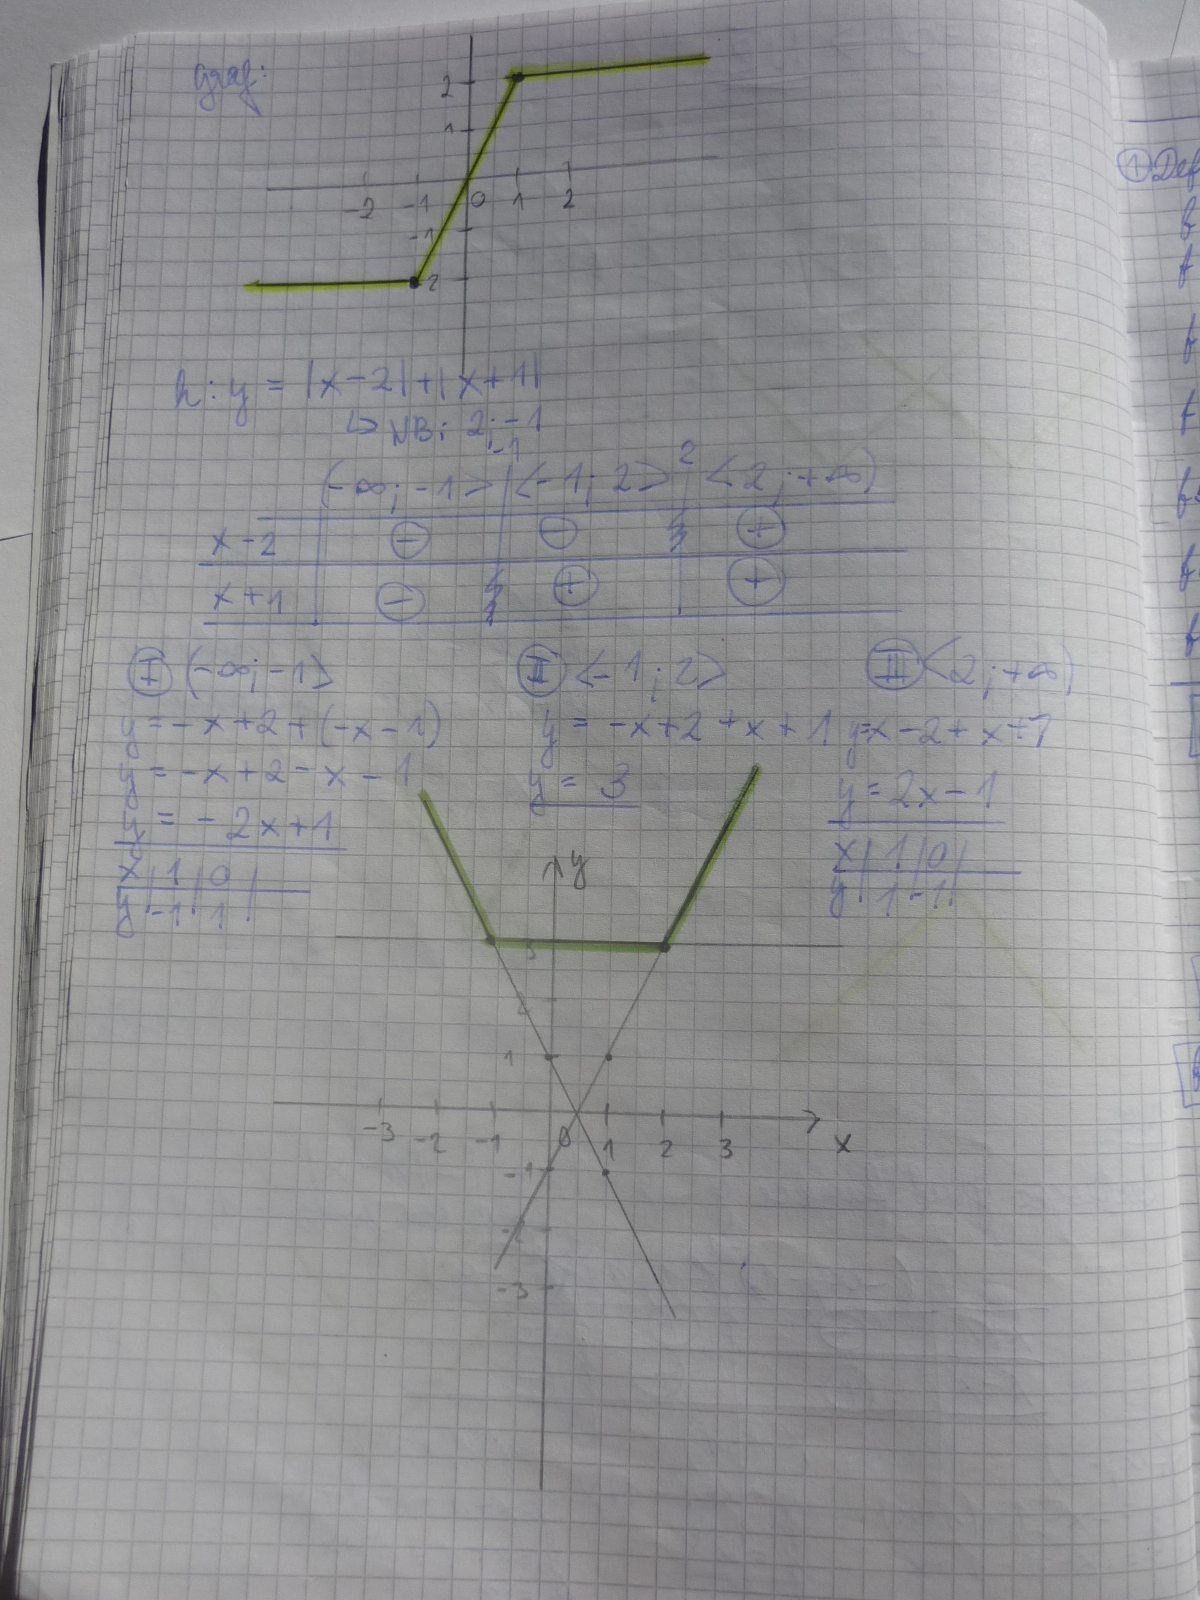 graf:
2
1
-2 -1 0 1 2
-1
-2
h: y = |x-2|+|x+1|
↳ NB: 2; -1
-1 2
(-∞; -1> <-1; 2> <2; +∞)
x-2 - - +
x+1 - + +
I (-∞; -1> II <-1; 2> III <2; +∞)
y=-x+2+(-x-1) y = -x+2+x+1 y=x-2+x+1
y=-x+2-x-1 y = 3 y=2x-1
y= -2x+1
x 1 0 x 1 0
y -1 1 y 1 -1
y
3
2
1
-3 -2 -1 0 1 2 3 x
-1
-2
-3
1 Def